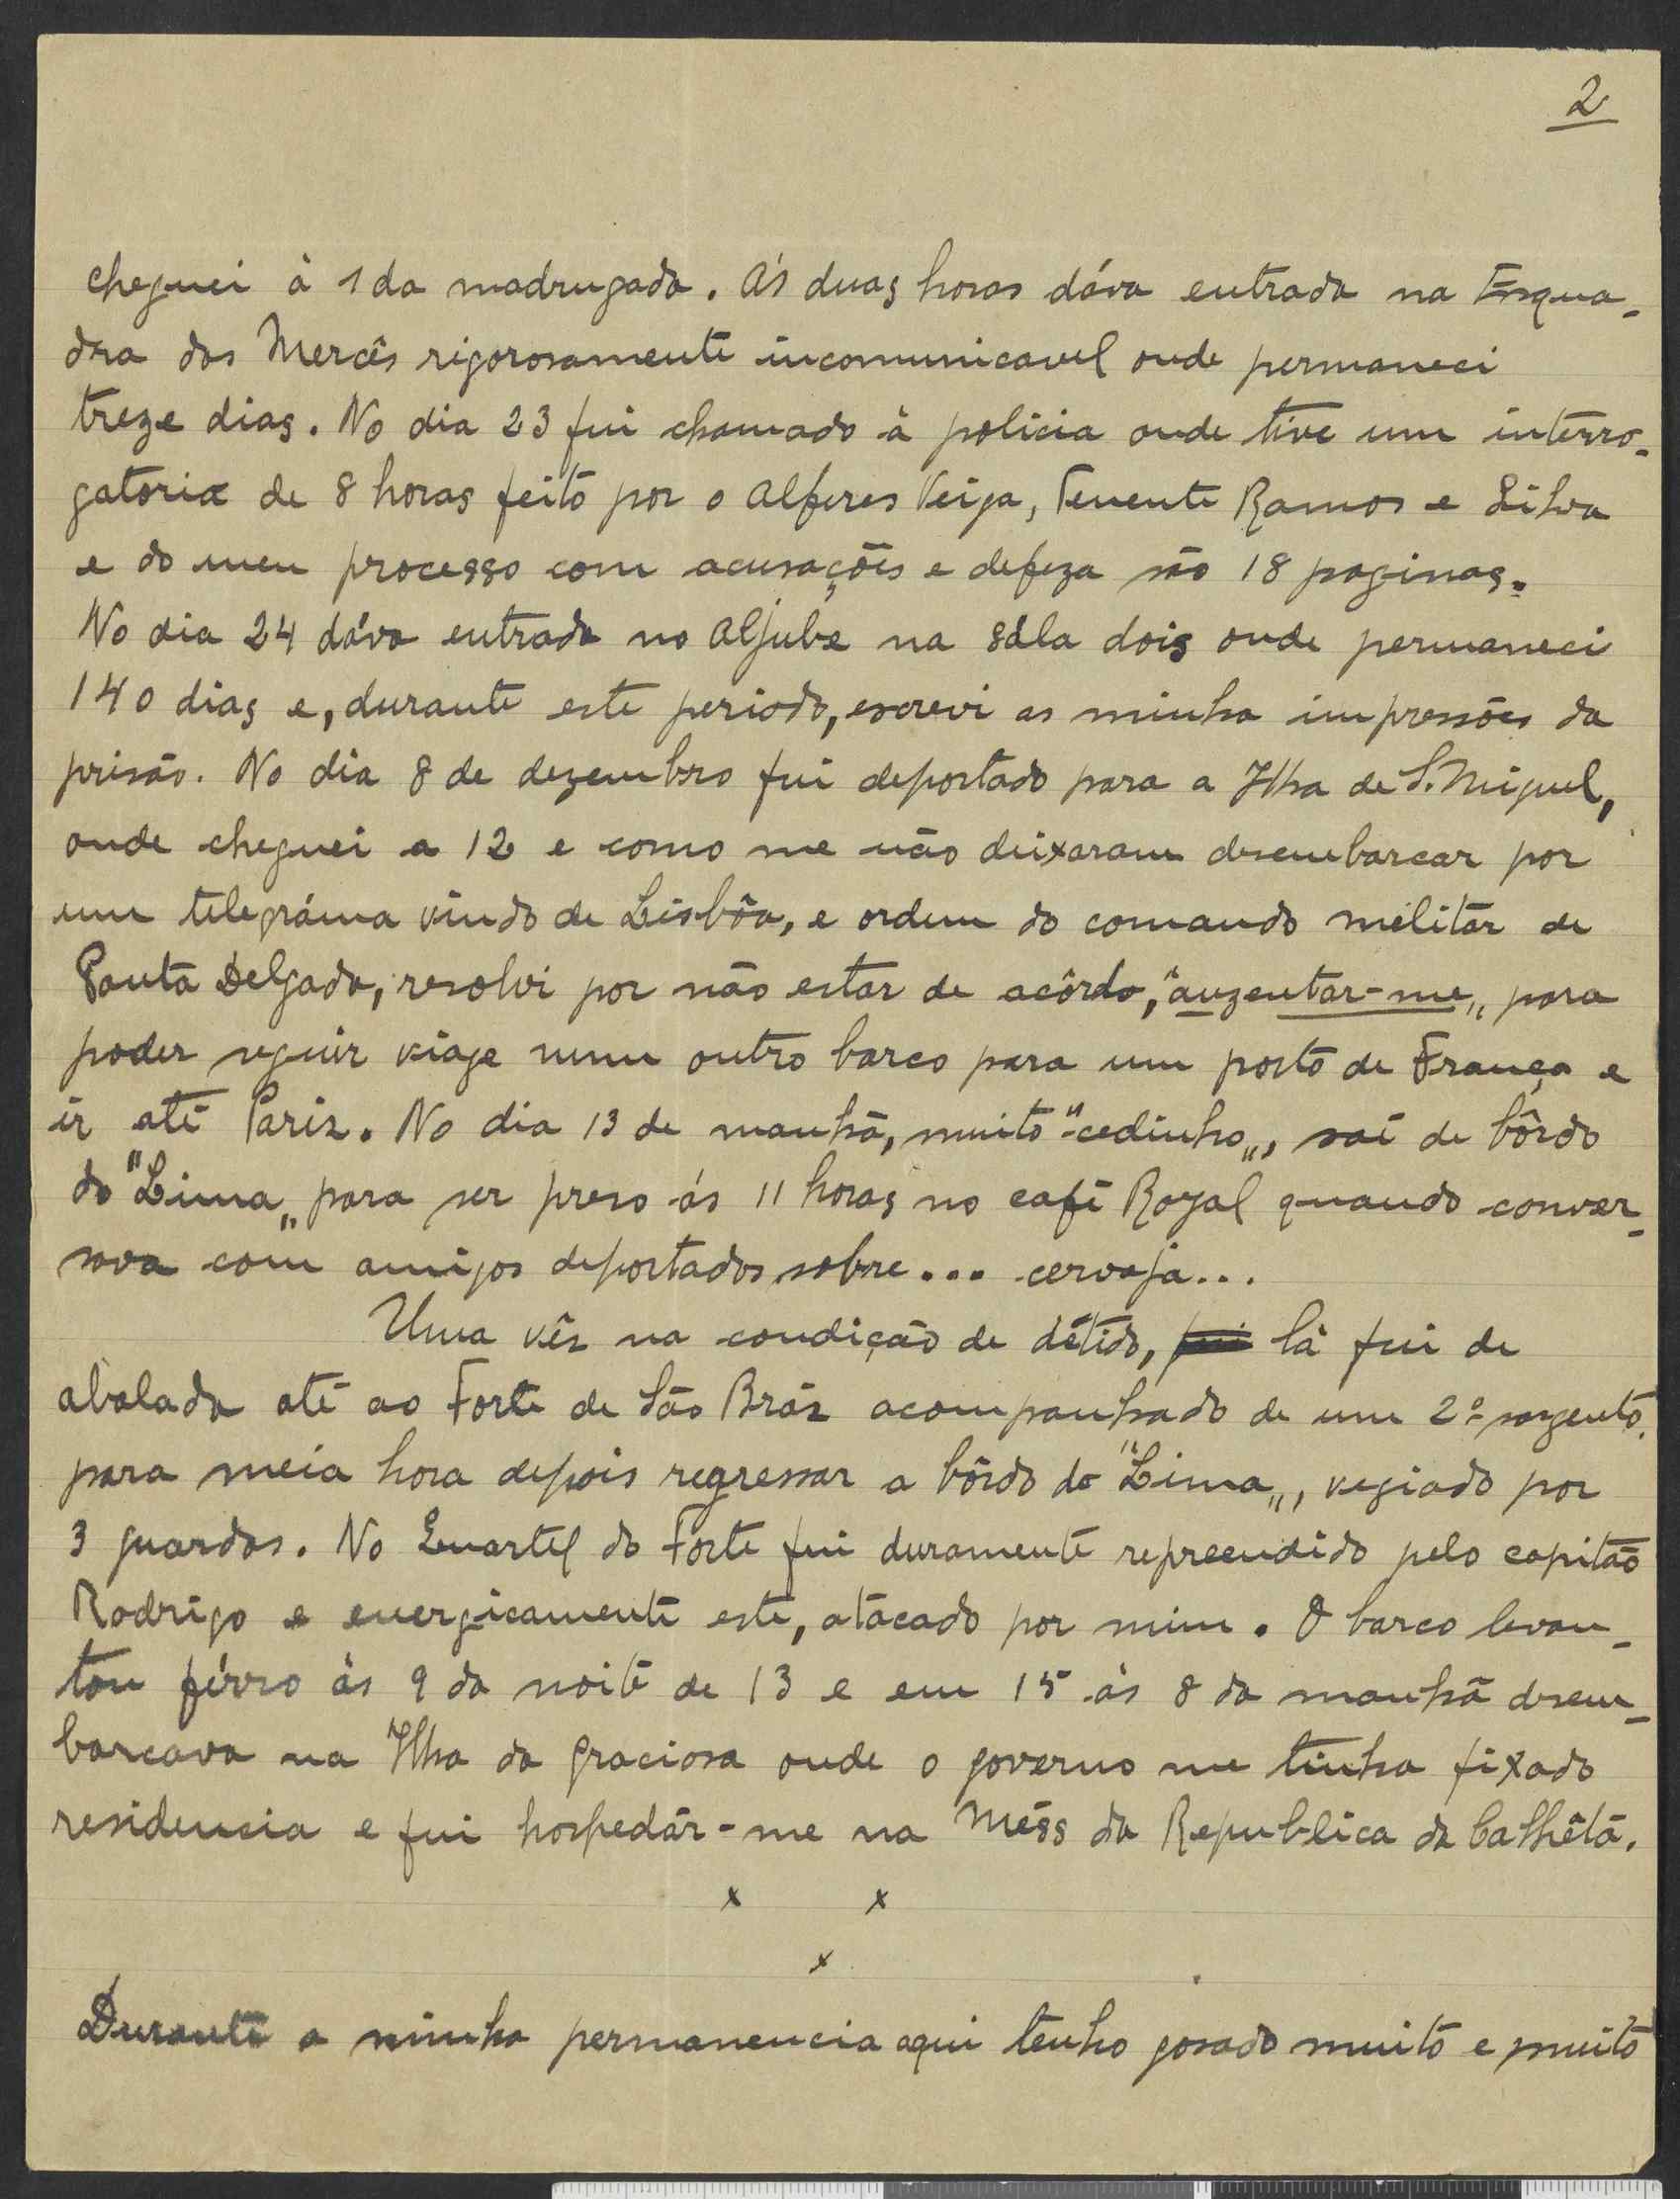 2
cheguei à 1 da madrugada. Ás duas horas dáva entrada na Esqua-
dra das Mercês rigorosamente incomunicavel onde permaneci
treze dias. No dia 23 fui chamado à policia onde tive um interro-
gatorio de 8 horas feito por o Alferes Veiga, Tenente Ramos e Silva
e do meu processo com acusações e defeza são 18 paginas.
No dia 24 dáva entrada no Aljube na sála dois onde permaneci
140 dias e, durante este periodo, escrevi as minha impressões da
prisão. No dia 8 de dezembro fui deportado para a Ilha de S. Miguel,
onde cheguei a 12 e como me não deixaram desembarcar por
um telegráma vindo de Lisbôa, e ordem do comando militar de
Ponta Delgada, resolvi por não estar de acôrdo, "auzentar-me„ para
poder seguir viage num outro barco para um porto de França e
ir até Pariz. No dia 13 de manhã, muito "cedinho„, saí de bôrdo
do "Lima„ para ser preso ás 11 horas no café Royal quando conver-
sava com amigos deportados sobre... cerveja...
Uma vês na condição de détido, fui lá fui de
abalada até ao Forte de São Bráz acompanhado de um 2º sargento,
para meia hora depois regressar a bôrdo do "Lima„, vegiado por
3 guardas. No Quartel do Forte fui duramente repreendido pelo capitão
Rodrigo e energicamente este, atacado por mim. O barco levan-
tou férro ás 9 da noite de 13 e em 15 ás 8 da manhã desem-
barcava na Ilha da Graciosa onde o governo me tinha fixado
residencia e fui hospedár-me na Méss da Republica da Calhêta.
x x
x
Durante a minha permanencia aqui tenho gosado muito e muito